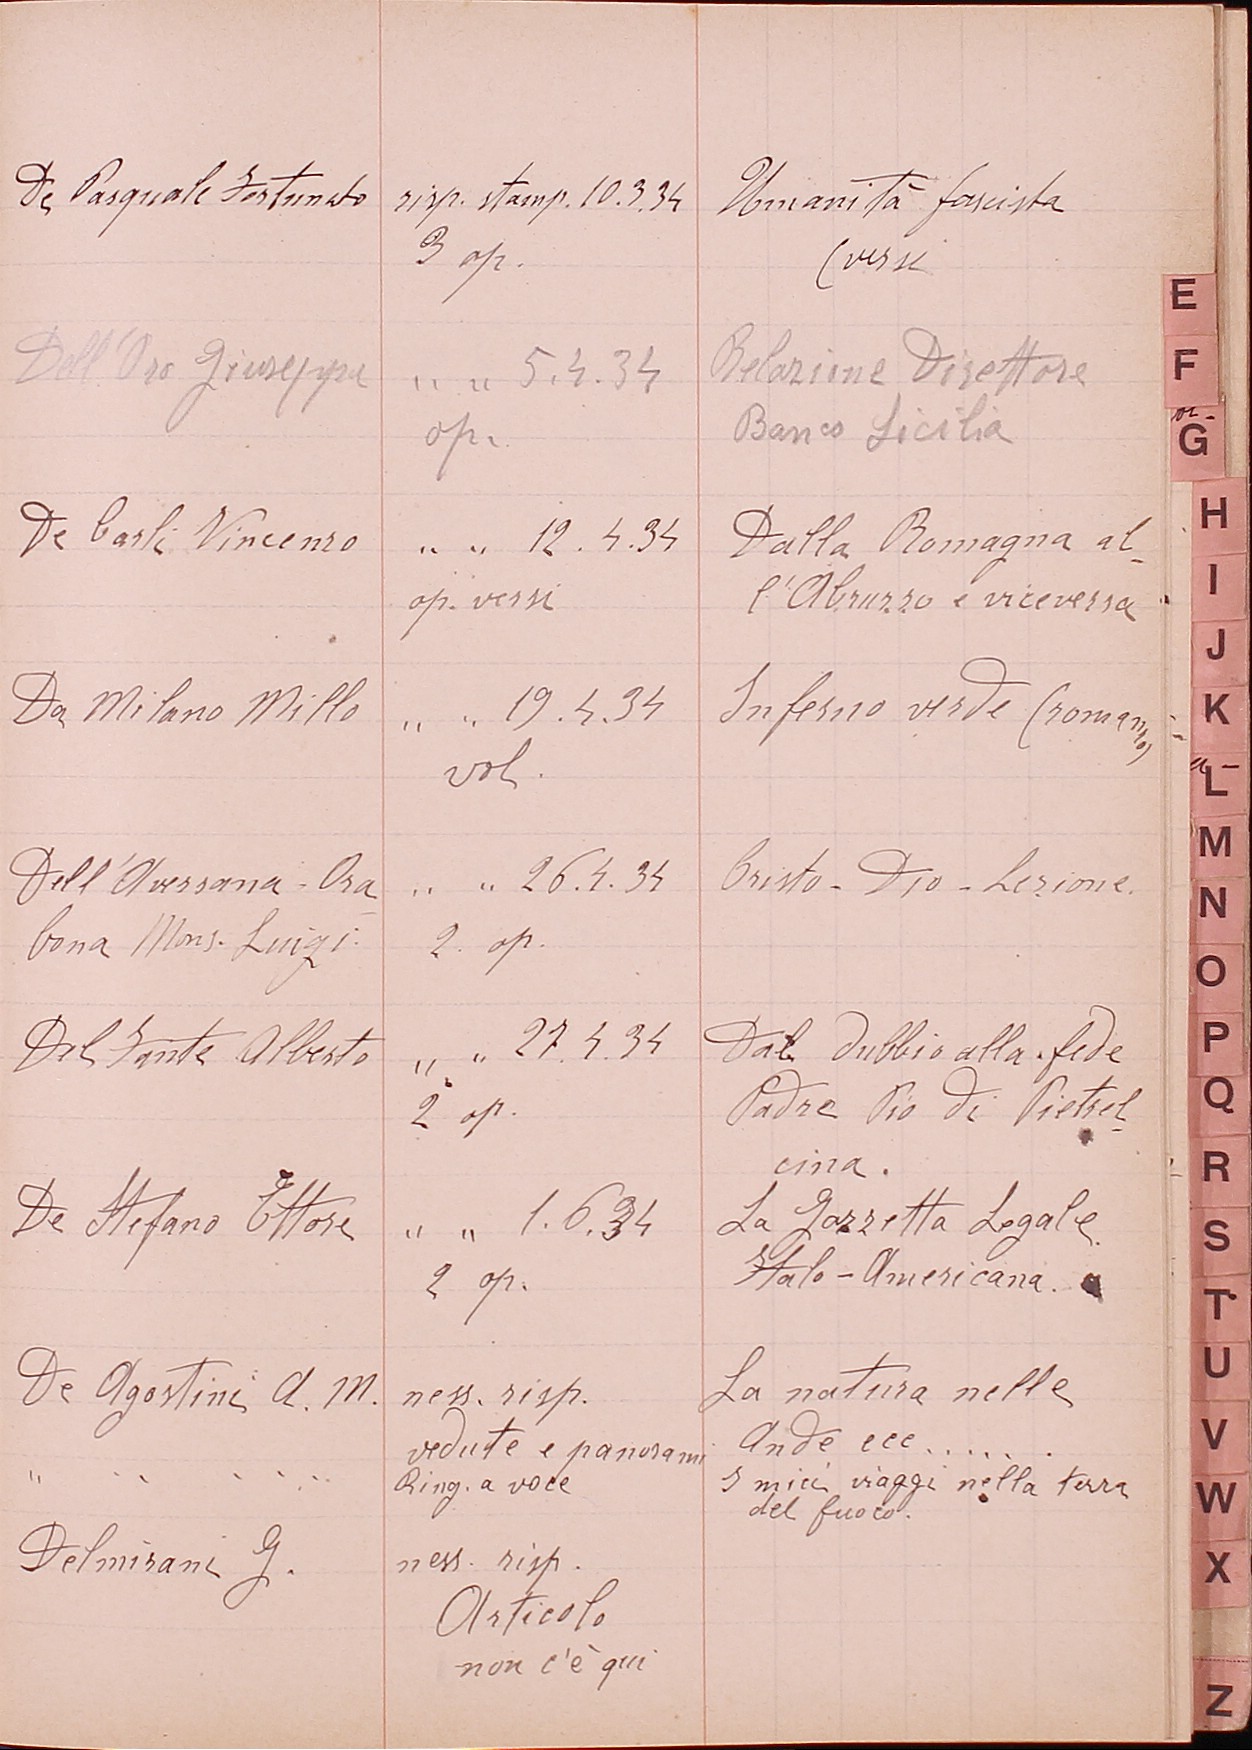 De Pasquale Fortunato risp. stamp. 10.3.34 Umanità fascista
3 op. (versi
Dell'Oro Giuseppe " " 5.4.34 Relazione Direttore
op. Banco Sicilia
De Carli Vincenzo " " 12.4.34 Dalla Romagna al-
op. versi l'Abruzzo e viceversa
Da Milano Millo " " 19.4.34 Inferno verde (romanzo)
vol.
Dell'Aversana-Ora " " 26.4.34 Cristo-Dio-Lezione.
bona Mons. Luigi. 2 op.
Del Fante Alberto " " 27.4.34 Dal dubbio alla fede
2 op. Padre Pio di Pietrel-
cina.
De Stefano Ettore " " 1.6.34 La Gazzetta Legale
2 op. Italo-Americana.
De Agostini A. M. ness. risp. La natura nelle
vedute e panorami Ande ecc......
" " " " Ring. a voce I miei viaggi nella terra
del fuoco.
Delmirani G. ness. risp.
Articolo
non c'è qui
E
F
G
H
I
J
K
L
M
N
O
P
Q
R
S
T
U
V
W
X
Z